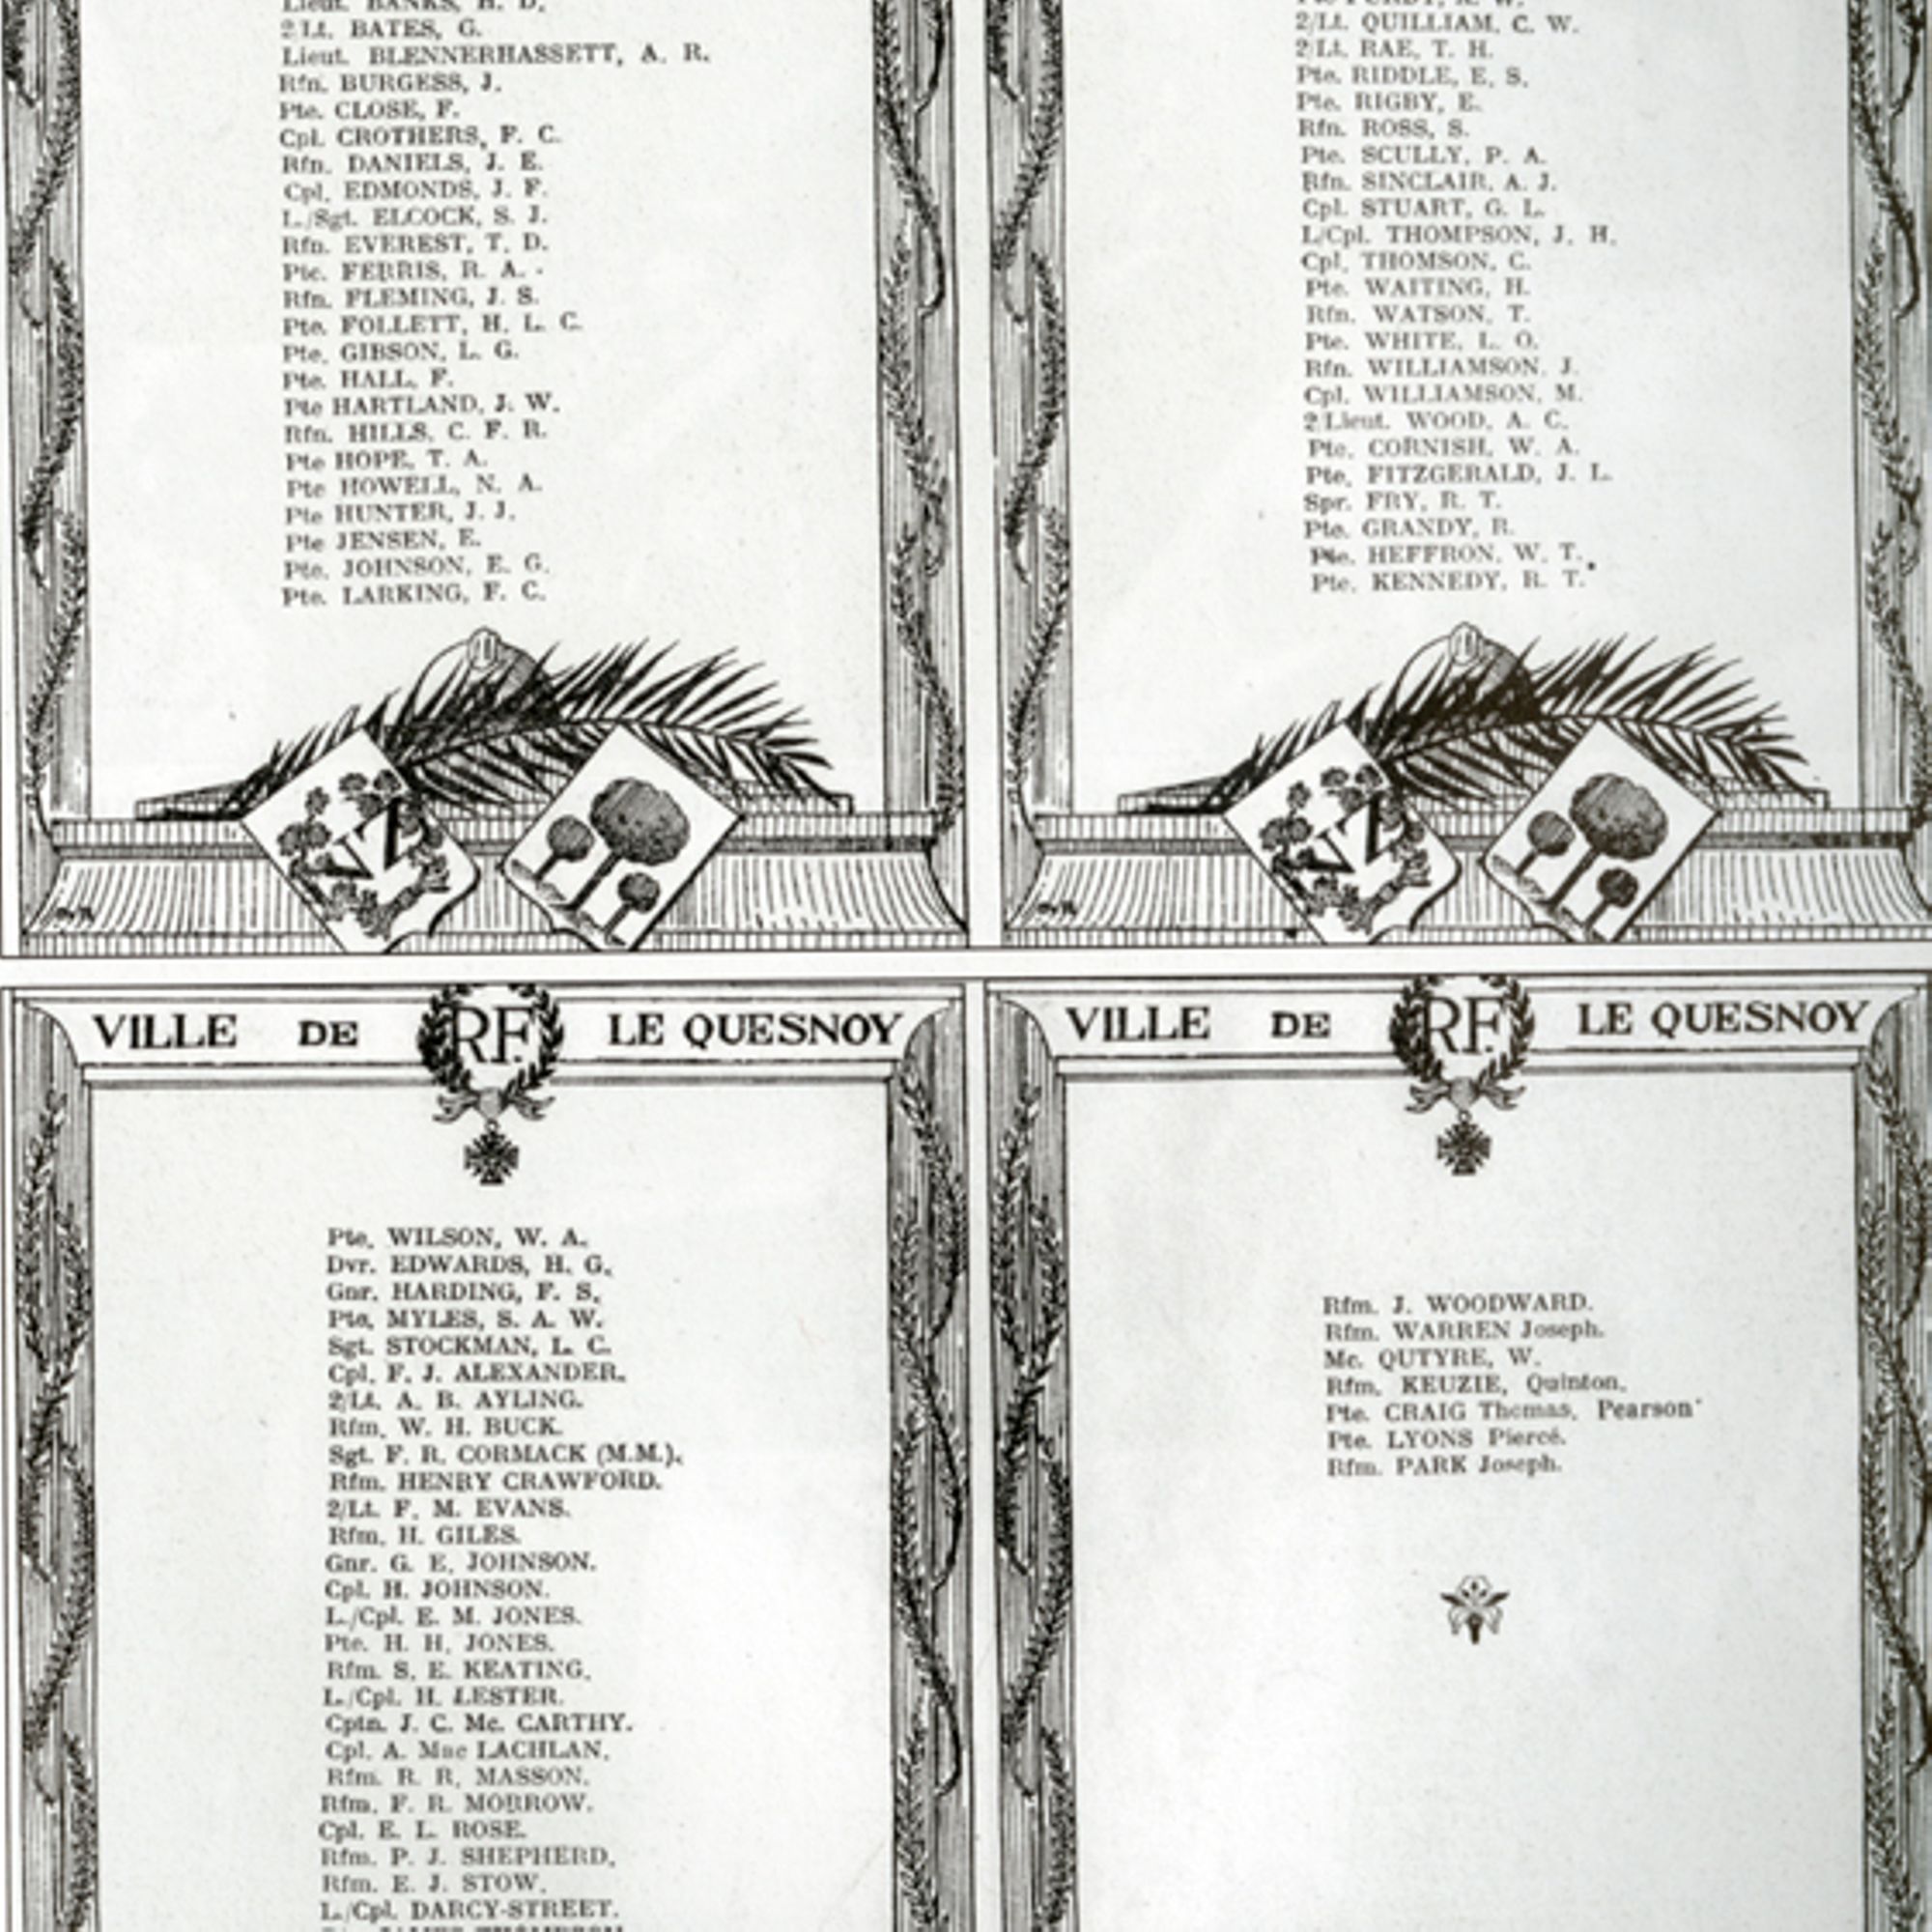 Lieut. BANKS, H. D.
2/Lt. BATES, G.
Lieut. BLENNERHASSETT, A. R.
Rfn. BURGESS, J.
Pte. CLOSE, F.
Cpl. CROTHERS, F. C.
Rfn. DANIELS, J. E.
Cpl. EDMONDS, J. F.
L./Sgt. ELCOCK, S. J.
Rfn. EVEREST, T. D.
Pte. FERRIS, R. A.
Rfn. FLEMING, J. S.
Pte. FOLLETT, H. L. C.
Pte. GIBSON, L. G.
Pte. HALL, F.
Pte HARTLAND, J. W.
Rfn. HILLS, C. F. R.
Pte HOPE, T. A.
Pte HOWELL, N. A.
Pte HUNTER, J. J.
Pte JENSEN, E.
Pte. JOHNSON, E. G.
Pte. LARKING, F. C.
NZ
2/Lt. QUILLIAM, C. W.
2/Lt. RAE, T. H.
Pte. RIDDLE, E. S.
Pte. RIGBY, E.
Rfn. ROSS, S.
Pte. SCULLY, P. A.
Rfn. SINCLAIR, A. J.
Cpl. STUART, G. L.
L/Cpl. THOMPSON, J. H.
Cpl. THOMSON, C.
Pte. WAITING, H.
Rfn. WATSON, T.
Pte. WHITE, L. O.
Rfn. WILLIAMSON, J.
Cpl. WILLIAMSON, M.
2/Lieut. WOOD, A. C.
Pte. CORNISH, W. A.
Pte. FITZGERALD, J. L.
Spr. FRY, R. T.
Pte. GRANDY, R.
Pte. HEFFRON, W. T.
Pte. KENNEDY, R. T.
NZ
VILLE DE RF. LE QUESNOY
Pte. WILSON, W. A.
Dvr. EDWARDS, H. G.
Gnr. HARDING, F. S.
Pte. MYLES, S. A. W.
Sgt. STOCKMAN, L. C.
Cpl. F. J. ALEXANDER.
2/Lt. A. B. AYLING.
Rfm. W. H. BUCK.
Sgt. F. R. CORMACK (M.M.).
Rfm. HENRY CRAWFORD.
2/Lt. F. M. EVANS.
Rfm. H. GILES.
Gnr. G. E. JOHNSON.
Cpl. H. JOHNSON.
L./Cpl. E. M. JONES.
Pte. H. H. JONES.
Rfm. S. E. KEATING.
L./Cpl. H. LESTER.
Cptn. J. C. Mc. CARTHY.
Cpl. A. Mac LACHLAN.
Rfm. R. R. MASSON.
Rfm. F. R. MORROW.
Cpl. E. L. ROSE.
Rfm. P. J. SHEPHERD.
Rfm. E. J. STOW.
L./Cpl. DARCY-STREET.
VILLE DE RF. LE QUESNOY
Rfm. J. WOODWARD.
Rfm. WARREN Joseph.
Mc. QUTYRE, W.
Rfm. KEUZIE, Quinton.
Pte. CRAIG Thomas, Pearson
Pte. LYONS Piercé.
Rfm. PARK Joseph.